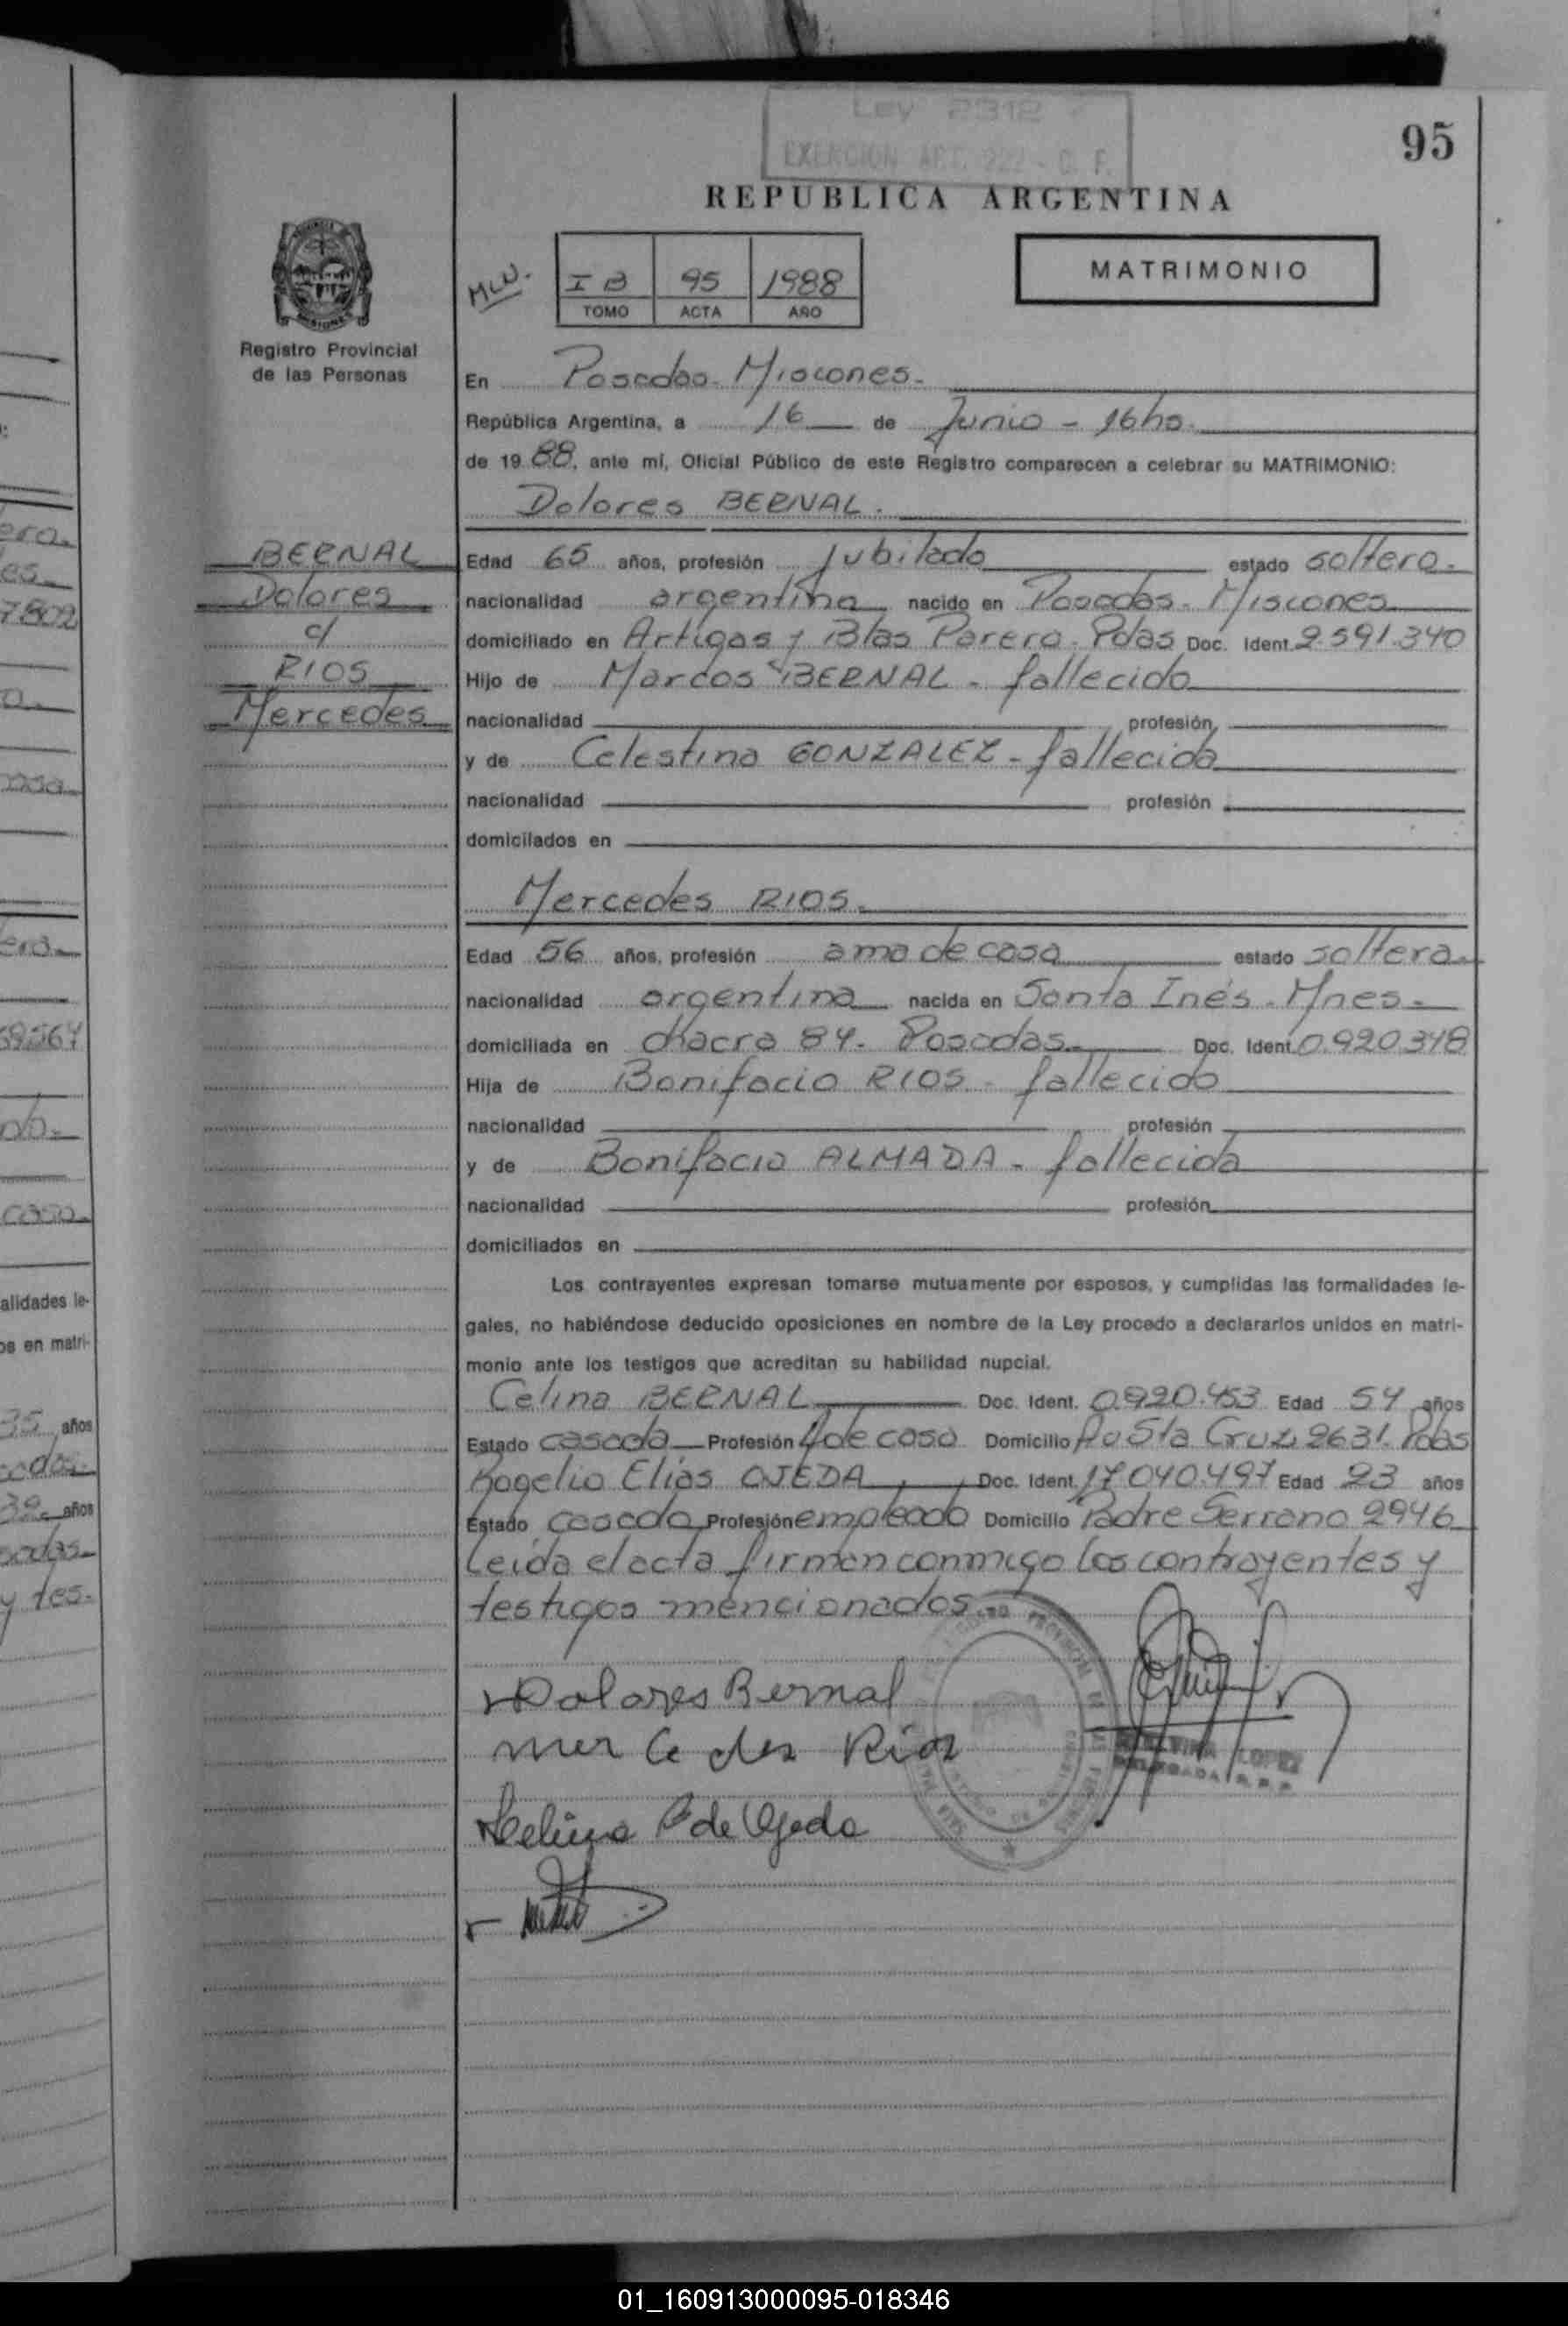 Ley 2312
EXENCION ART. 222 - C. F.
95
REPUBLICA ARGENTINA
MATRIMONIO
I B 95 1988
TOMO ACTA AÑO
Registro Provincial
de las Personas
En Posadas - Misiones -
República Argentina, a 16 de Junio - 16hs.
de 1988, ante mí, Oficial Público de este Registro comparecen a celebrar su MATRIMONIO:
Dolores BERNAL.
BERNAL
Dolores
c/
RIOS
Mercedes
Edad 65 años, profesión jubilado estado soltero.
nacionalidad argentina nacido en Posadas - Misiones
domiciliado en Artigas y Blas Parera - Pdas Doc. Ident. 2.591.340
Hijo de Marcos BERNAL - fallecido
nacionalidad profesión
y de Celestina GONZALEZ - fallecida
nacionalidad profesión
domicilados en
Mercedes RIOS.
Edad 56 años, profesión ama de casa estado soltera.
nacionalidad argentina nacida en Santa Inés - Mnes.
domiciliada en chacra 84 - Posadas Doc. Ident. 0.920.348
Hija de Bonifacio RIOS - fallecido
nacionalidad profesión
y de Bonifacia ALMADA - fallecida
nacionalidad profesión
domiciliados en
Los contrayentes expresan tomarse mutuamente por esposos, y cumplidas las formalidades le-
gales, no habiéndose deducido oposiciones en nombre de la Ley procedo a declararlos unidos en matri-
monio ante los testigos que acreditan su habilidad nupcial.
Celina BERNAL Doc. Ident. 0.920.453 Edad 54 años
Estado casada Profesión A de casa Domicilio Av Sta Cruz 2631. Pdas
Rogelio Elias OJEDA Doc. Ident. 17.040.497 Edad 23 años
Estado casado Profesión empleado Domicilio Padre Serrano 2946
Leída el acta firman conmigo los contrayentes y
testigos mencionados
Dolores Bernal
mer ce des Rios
Celina B de Ojeda
LOPEZ
DELEGADA R.P.P.
01_160913000095-018346